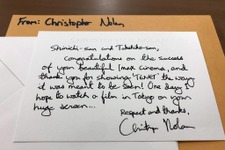 From: Christopher Nolan
Shinichi-san and Takahito-san,
Congratulations on the success
of your beautiful Imax cinema, and
thank you for showing 'TENET' the way
it was meant to be seen! One day I
hope to watch a film in Tokyo on your
huge screen...
Respect and thanks,
Christopher Nolan